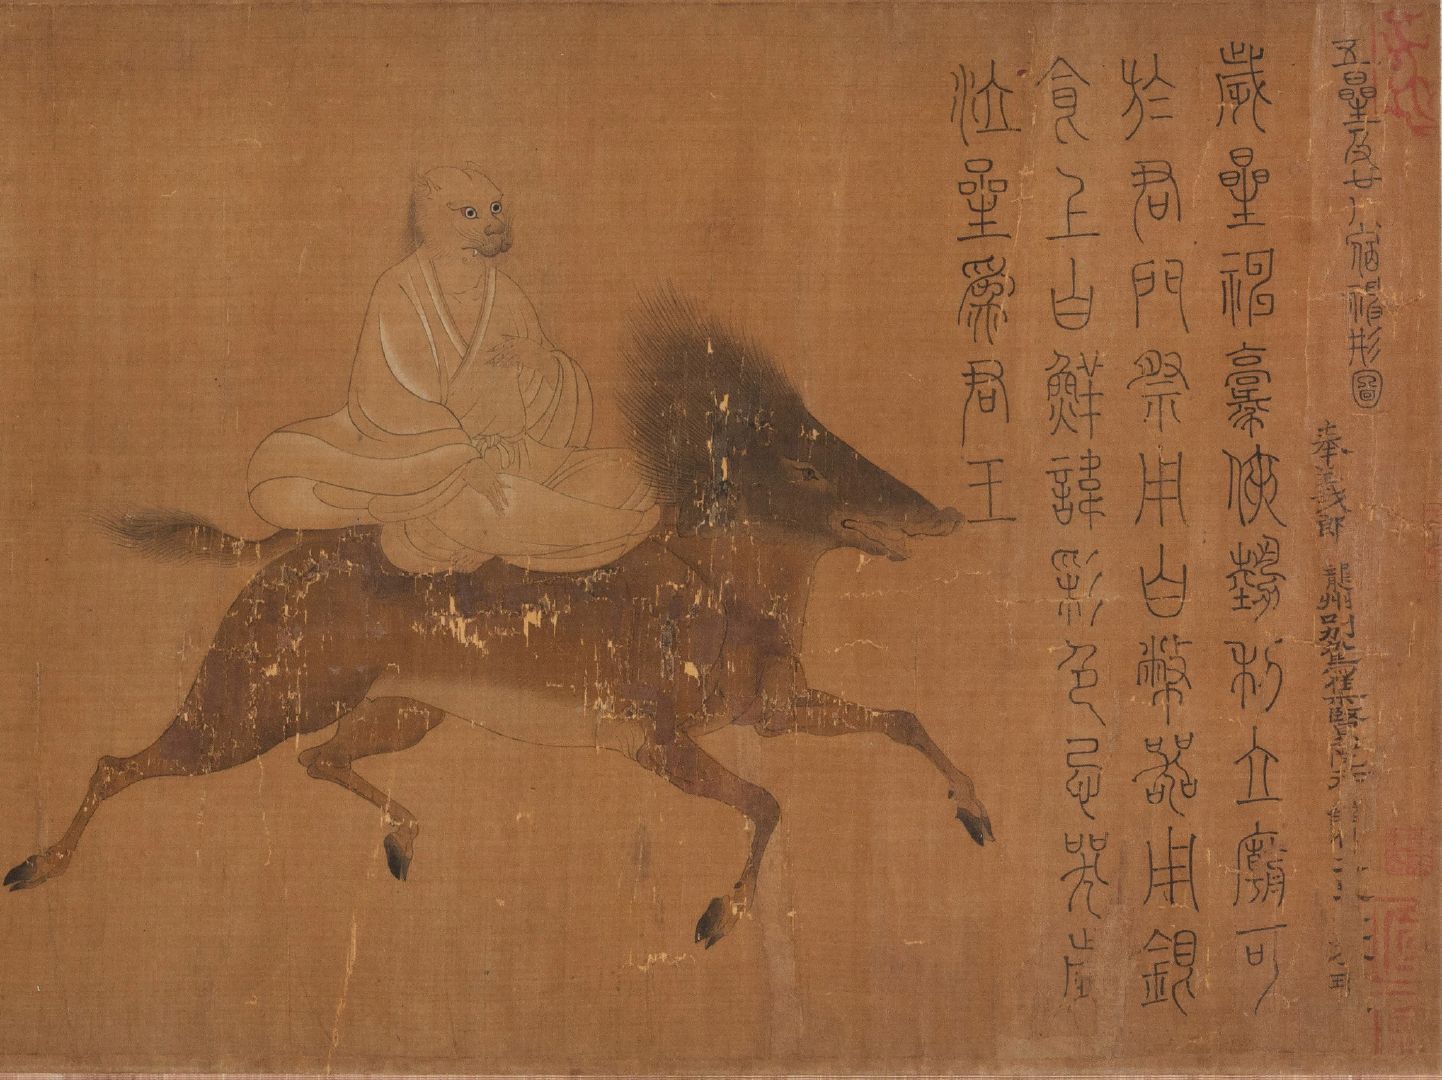 五星及廿八宿神形圖
奉義郎 隴州別駕集賢院
歲星神豪俠勢利立廟可
於君門祭用白幣器用銀
食上白鮮諱彩色忌哭
泣星為君王